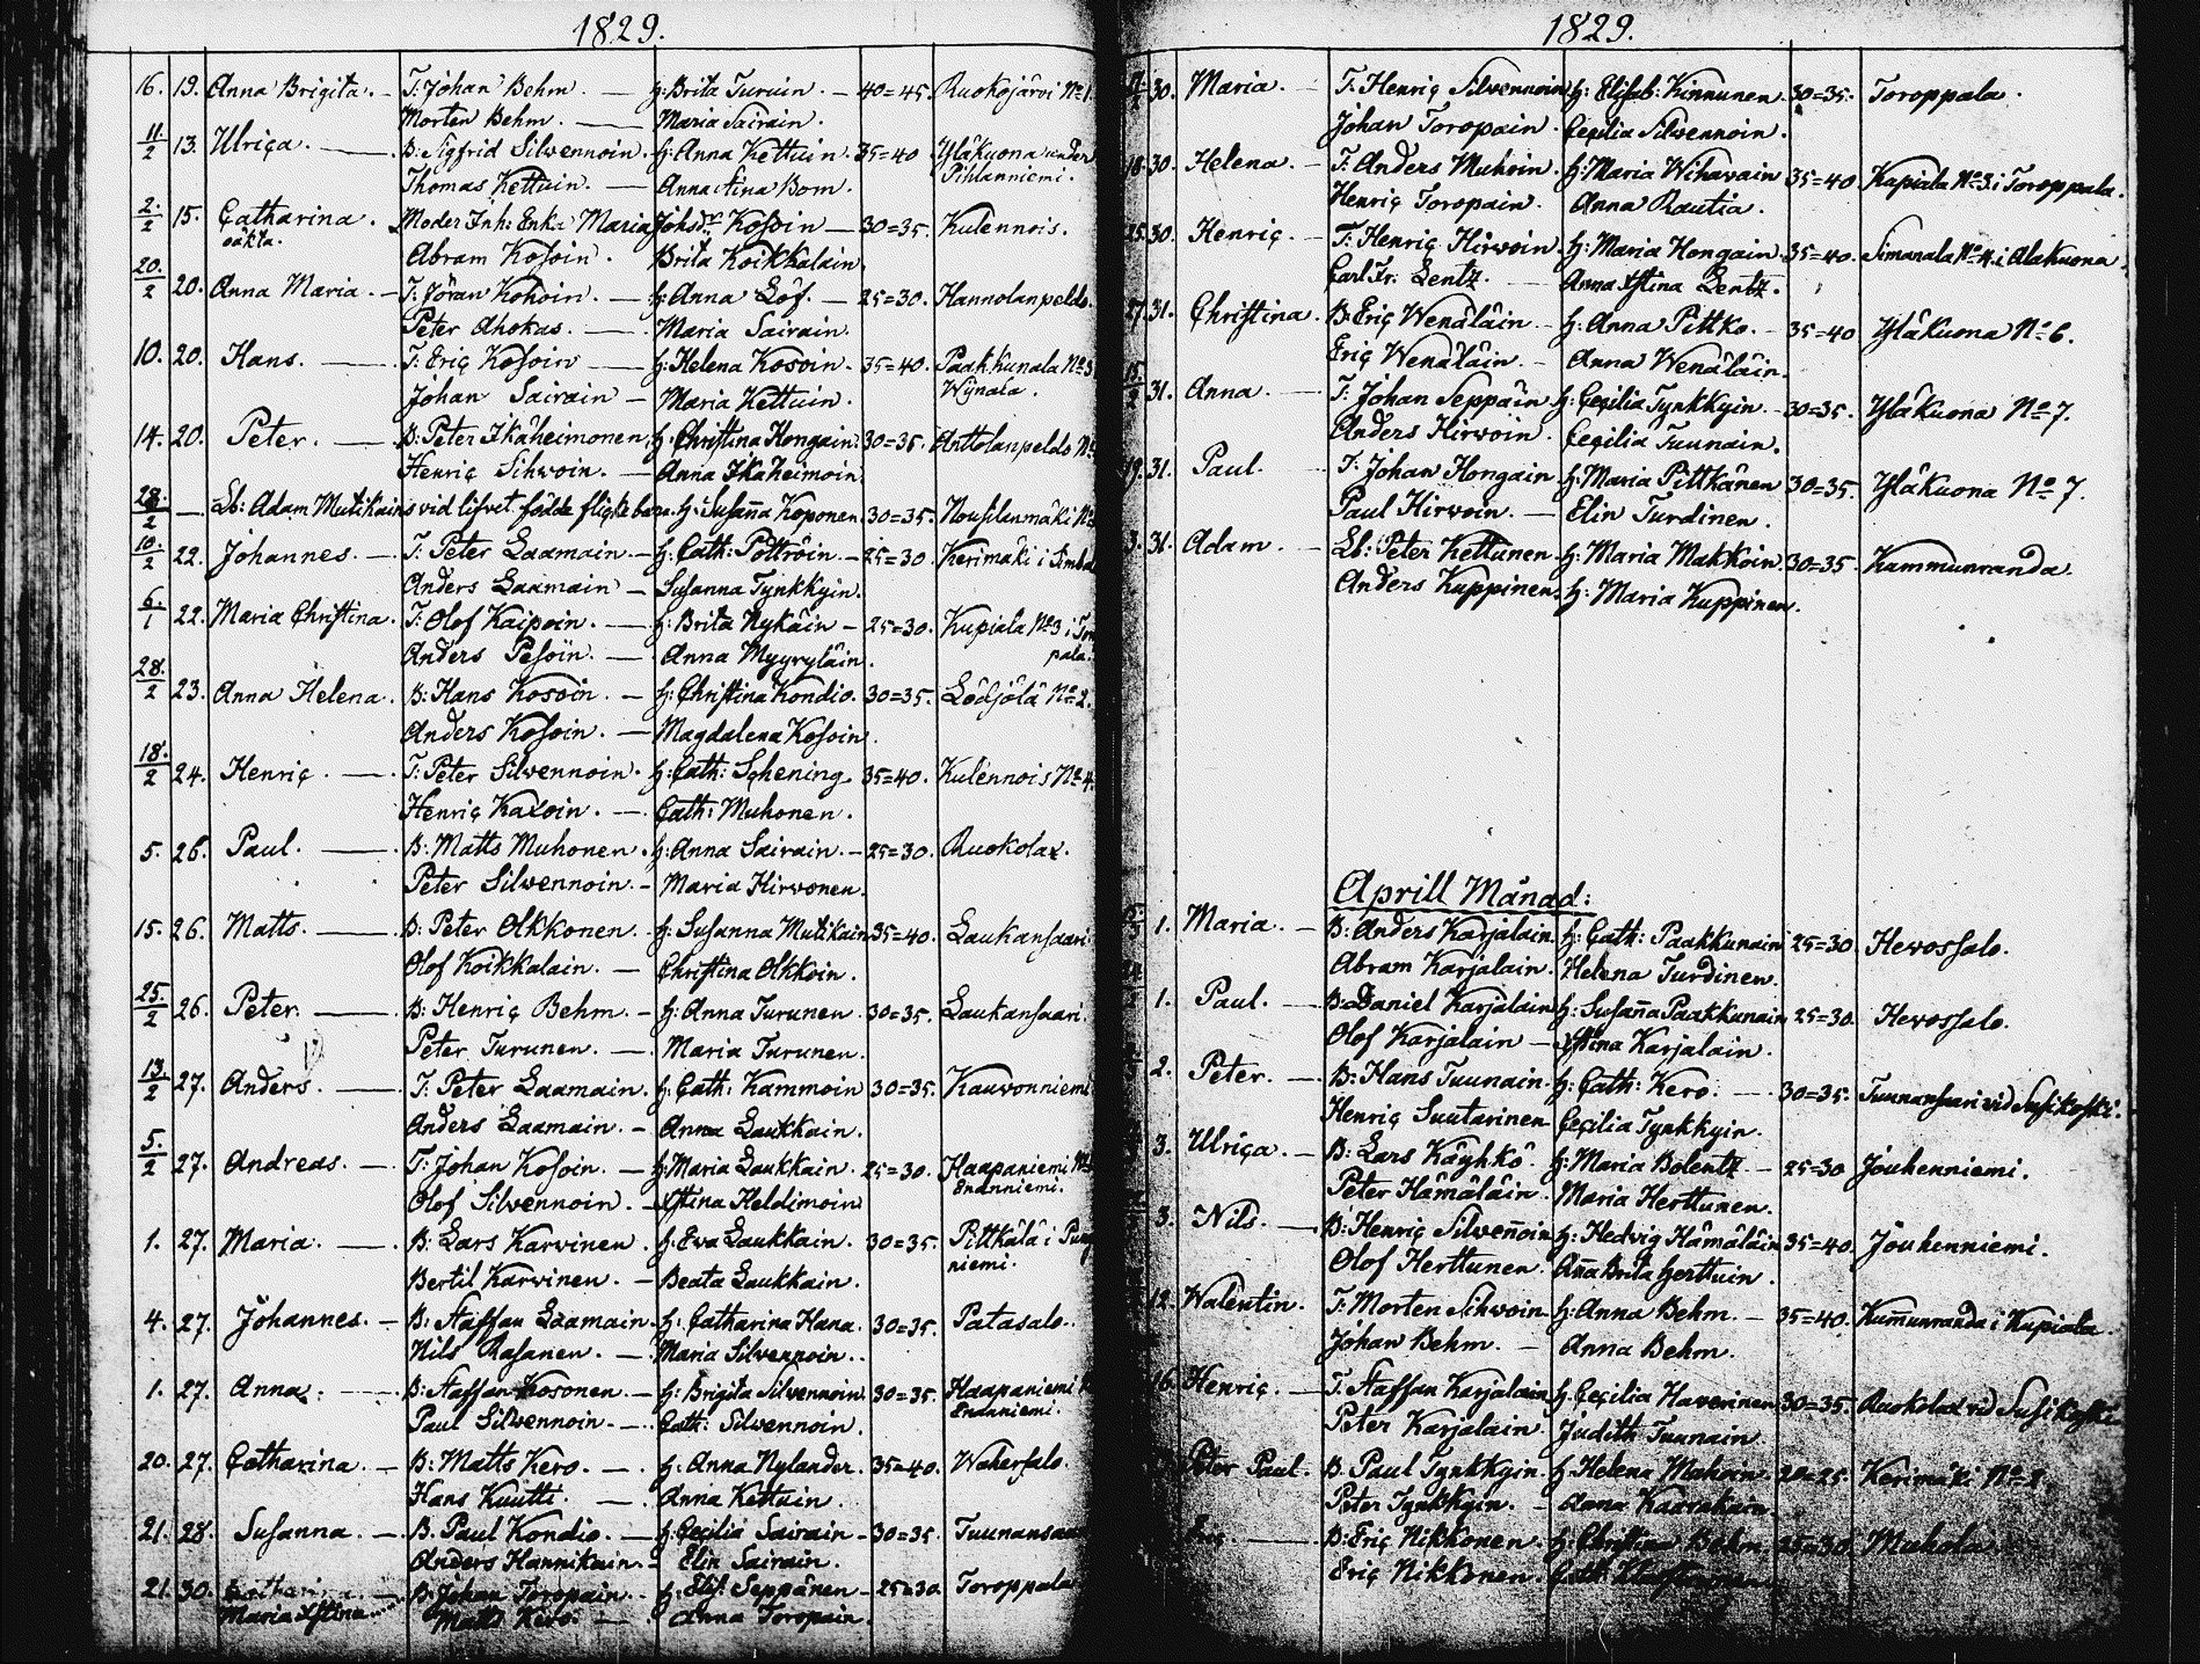 1829.
16. 19. Anna Brigita. — T: Johan Behm. — h: Brita Turuin. — 40=45. Ruokojärvi No 1
Morten Behm. — Maria Sairain.
11./2 13. Ulrica. — B: Sigfrid Silvennoin. h: Anna Kettuin. 35=40 Yläkuona under
Thomas Kettuin. — Anna Stina Bom. Pihlanniemi.
2./2 15. Catharina. Moder Inh: Enka Maria Johsdr Kosoin — 30=35. Kulennois.
oäkta. Abram Kosoin. Brita Koikkalain.
20./2 20. Anna Maria. — T: Jöran Kohoin. — h: Anna Löf. — 25=30. Hannolanpeldo.
Peter Ahokas. — Maria Sairain.
10. 20. Hans. — T: Eric Kosoin — h: Helena Kosoin. 35=40. Paakkunala No 3
Johan Sairain — Maria Kettuin. Wijnala.
14. 20. Peter. — B: Peter Ikäheimonen. h: Christina Hongain. 30=35. Anttolanpeldo No
Henric Sihvoin. — Anna Ikäheimoin.
28./2 — Lb: Adam Mutikains vid lifvet födde flicke barn. h: Susanna Koponen. 30=35. Nousilanmäki No
10./2 22. Johannes. — T: Peter Laamain. — h: Cath: Pöttröin. — 25=30. Kerimäki i Simbal
Anders Laamain — Susanna Tynkkyin.
6./1 22. Maria Christina. T: Olof Kaipoin. — h: Brita Nykäin — 25=30. Kupiala No 3 i Tor
Anders Pesöin. — Anna Myyryläin. pala.
28./2 23. Anna Helena. B: Hans Kosoin. — h: Christina Kondio. 30=35. Lödjölä No 2.
Anders Kosoin. — Magdalena Kosoin.
18./2 24. Henric. — T: Peter Silvennoin. h: Cath: Schening. 35=40. Kulennois No 4.
Henric Kaxoin. — Cath: Muhonen.
5. 26. Paul. — B: Matts Muhonen. h: Anna Sairain. — 25=30. Ruokolax.
Peter Silvennoin. — Maria Hirvonen.
15. 26. Matts. — B: Peter Olkkonen. h: Susanna Mutikain 35=40. Laukansaari.
Olof Koikkalain. — Christina Olkkoin.
25./2 26. Peter — B: Henric Behm. — h: Anna Turunen. 30=35. Laukansaari.
Peter Turunen. — Maria Turunen.
13./2 27. Anders. — T: Peter Laamain. h: Cath: Kammoin 30=35. Kauvonniemi
Anders Laamain. — Anna Laukkain.
5./2 27. Andreas. — T: Johan Kosoin. — h: Maria Laukkain. 25=30. Haapaniemi No
Olof Silvennoin. — Xstina Heldimoin Enanniemi.
1. 27. Maria. — B: Lars Karvinen. h: Eva Laukkain. 30=35. Pittkälä i Pung
Bertil Karvinen. — Beata Laukkain. niemi.
4. 27. Johannes. — B: Staffan Laamain. h: Catharina Hana. 30=35. Patasalo.
Nils Rasanen. — Maria Silvennoin.
1. 27. Anna. — B: Staffan Kosonen. — h: Brigita Silvennoin 30=35. Haapaniemi
Paul Silvennoin. — Cath: Silvennoin. Enanniemi.
20. 27. Catharina. — B: Matts Kero. — h: Anna Nylander. 35=40. Wahersalo.
Hans Kuutti. — Anna Kettuin.
21. 28. Susanna. — B. Paul Kondio. — h: Cecilia Sairain — 30=35. Tuunansaa
Anders Hannikain. — Elin Sairain.
21. 30. Catharina — B: Johan Toropain. — h: Elis: Seppänen — 25=30. Toroppala
Maria Xstina Matts Kero. — Anna Toropain.
1829.
30. Maria. — T: Henric Silvennoin h: Elisab: Kinnunen. 30=35. Toroppala.
Johan Toropain. Cecilia Silvennoin.
18. 30. Helena. — T: Anders Muhoin. h: Maria Wihavain 35=40 Kapiala No 3. i Toroppala.
Henric Toropain. Anna Rautia.
25. 30. Henric. — T: Henric Hirvoin. h: Maria Hongain. 35=40. Simanala No 4. i Alakuona.
Carl Fr. Lentz. — Anna Xstina Lentz.
27. 31. Christina. B: Eric Wenäläin — h: Anna Pittko. — 35=40 Yläkuona No 6.
Eric Wenäläin. — Anna Wenäläin.
15./2 31. Anna. — T: Johan Seppäin h: Cecilia Tynkkyin. — 30=35. Yläkuona No 7.
Anders Hirvoin. Cecilia Tuunain.
19. 31. Paul. — T: Johan Hongain h: Maria Pittkänen 30=35. Yläkuona No 7.
Paul Hirvoin. — Elin Turdinen.
3. 31. Adam. — Lb: Peter Kettunen. h: Maria Makkoin. 30=35. Kammunranda.
Anders Kuppinen. h: Maria Kuppinen.
Aprill Månad:
1. Maria. — B: Anders Karjalain. h: Cath: Paakkunain 25=30. Hevossalo.
Abram Karjalain. Helena Turdinen.
1. Paul. — B: Daniel Karjalain h: Susanna Paakkunain 25=30. Hevossalo.
Olof Karjalain — Xstina Karjalain.
2. Peter. — B: Hans Tuunain. h: Cath: Kero. — 30=35. Tuunansaari vid Susikoski.
Henric Suutarinen Cecilia Tynkkyin.
3. Ulrica. — B: Lars Käyhkö. h: Maria Bolentz — 25=30 Jouhenniemi.
Peter Hämäläin. Maria Herttunen.
3. Nils. — B: Henric Silvennoin h: Hedvig Hämäläin 35=40. Jouhenniemi.
Olof Herttunen. Anna Brita Herttuin.
12. Walentin. T: Morten Sihvoin. h: Anna Behm. — 35=40. Kummunranda i Kupiala.
Johan Behm. — Anna Behm.
16. Henric. — T. Staffan Karjalain h: Cecilia Haverinen 30=35. Ruokolax vid Susikoski
Peter Karjalain. Judith Tuunain
Peter Paul. B. Paul Tynkkyin. h: Helena Mahoin. 20=25. Kerimäki No
Peter Tynkkyin. — Anna Kaarakain.
B: Eric Nikkonen. h: Christina Behm. 25=30. Muhola
Eric Nikkonen. Cath